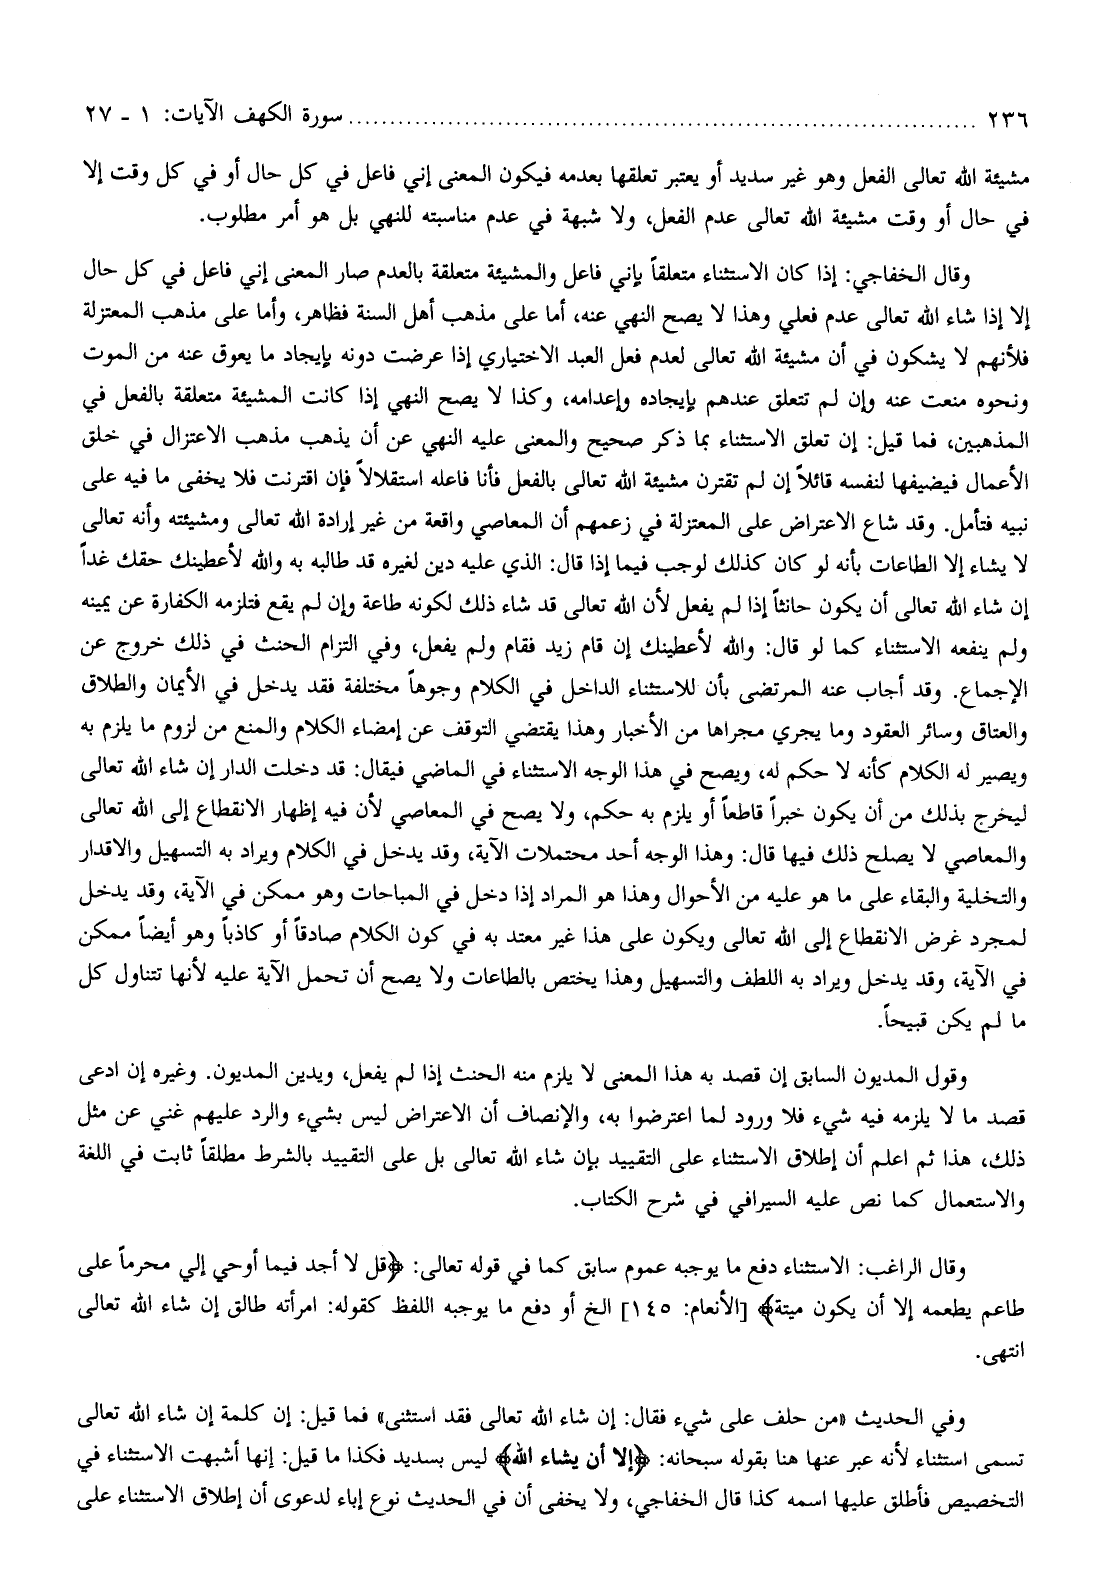 ٢٣٦ ........................................................................ سورة الكهف الآيات: ١ - ٢٧
مشيئة الله تعالى الفعل وهو غير سديد أو يعتبر تعلقها بعدمه فيكون المعنى إني فاعل في كل حال أو في كل وقت إلا
في حال أو وقت مشيئة الله تعالى عدم الفعل، ولا شبهة في عدم مناسبته للنهي بل هو أمر مطلوب.
وقال الخفاجي: إذا كان الاستثناء متعلقاً بإني فاعل والمشيئة متعلقة بالعدم صار المعنى إني فاعل في كل حال
إلا إذا شاء الله تعالى عدم فعلي وهذا لا يصح النهي عنه، أما على مذهب أهل السنة فظاهر، وأما على مذهب المعتزلة
فلأنهم لا يشكون في أن مشيئة الله تعالى لعدم فعل العبد الاختياري إذا عرضت دونه بإيجاد ما يعوق عنه من الموت
ونحوه منعت عنه وإن لم تتعلق عندهم بإيجاده وإعدامه، وكذا لا يصح النهي إذا كانت المشيئة متعلقة بالفعل في
المذهبين، فما قيل: إن تعلق الاستثناء بما ذكر صحيح والمعنى عليه النهي عن أن يذهب مذهب الاعتزال في خلق
الأعمال فيضيفها لنفسه قائلاً إن لم تقترن مشيئة الله تعالى بالفعل فأنا فاعله استقلالاً فإن اقترنت فلا يخفى ما فيه على
نبيه فتأمل. وقد شاع الاعتراض على المعتزلة في زعمهم أن المعاصي واقعة من غير إرادة الله تعالى ومشيئته وأنه تعالى
لا يشاء إلا الطاعات بأنه لو كان كذلك لوجب فيما إذا قال: الذي عليه دين لغيره قد طالبه به والله لأعطينك حقك غداً
إن شاء الله تعالى أن يكون حانثاً إذا لم يفعل لأن الله تعالى قد شاء ذلك لكونه طاعة وإن لم يقع فتلزمه الكفارة عن يمينه
ولم ينفعه الاستثناء كما لو قال: والله لأعطينك إن قام زيد فقام ولم يفعل، وفي التزام الحنث في ذلك خروج عن
الإجماع. وقد أجاب عنه المرتضى بأن للاستثناء الداخل في الكلام وجوهاً مختلفة فقد يدخل في الأيمان والطلاق
والعتاق وسائر العقود وما يجري مجراها من الأخبار وهذا يقتضي التوقف عن إمضاء الكلام والمنع من لزوم ما يلزم به
ويصير له الكلام كأنه لا حكم له، ويصح في هذا الوجه الاستثناء في الماضي فيقال: قد دخلت الدار إن شاء الله تعالى
ليخرج بذلك من أن يكون خبراً قاطعاً أو يلزم به حكم، ولا يصح في المعاصي لأن فيه إظهار الانقطاع إلى الله تعالى
والمعاصي لا يصلح ذلك فيها قال: وهذا الوجه أحد محتملات الآية، وقد يدخل في الكلام ويراد به التسهيل والاقدار
والتخلية والبقاء على ما هو عليه من الأحوال وهذا هو المراد إذا دخل في المباحات وهو ممكن في الآية، وقد يدخل
لمجرد غرض الانقطاع إلى الله تعالى ويكون على هذا غير معتد به في كون الكلام صادقاً أو كاذباً وهو أيضاً ممكن
في الآية، وقد يدخل ويراد به اللطف والتسهيل وهذا يختص بالطاعات ولا يصح أن تحمل الآية عليه لأنها تتناول كل
ما لم يكن قبيحاً.
وقول المديون السابق إن قصد به هذا المعنى لا يلزم منه الحنث إذا لم يفعل، ويدين المديون. وغيره إن ادعى
قصد ما لا يلزمه فيه شيء فلا ورود لما اعترضوا به، والإنصاف أن الاعتراض ليس بشيء والرد عليهم غني عن مثل
ذلك، هذا ثم اعلم أن إطلاق الاستثناء على التقييد بإن شاء الله تعالى بل على التقييد بالشرط مطلقاً ثابت في اللغة
والاستعمال كما نص عليه السيرافي في شرح الكتاب.
وقال الراغب: الاستثناء دفع ما يوجبه عموم سابق كما في قوله تعالى: ﴿قل لا أجد فيما أوحي إلي محرماً على
طاعم يطعمه إلا أن يكون ميتة﴾ [الأنعام: ١٤٥] الخ أو دفع ما يوجبه اللفظ كقوله: امرأته طالق إن شاء الله تعالى
انتهى.
وفي الحديث «من حلف على شيء فقال: إن شاء الله تعالى فقد استثنى» فما قيل: إن كلمة إن شاء الله تعالى
تسمى استثناء لأنه عبر عنها هنا بقوله سبحانه: ﴿إلا أن يشاء الله﴾ ليس بسديد فكذا ما قيل: إنها أشبهت الاستثناء في
التخصيص فأطلق عليها اسمه كذا قال الخفاجي، ولا يخفى أن في الحديث نوع إباء لدعوى أن إطلاق الاستثناء على